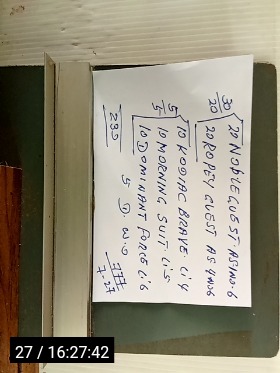 30/20 20 NOBLE GUEST. AS1NO.6
20 ROPEY GUEST AS4NO6
5/5 10 KODIAC BRAVE L1.4
10 MORNING SUIT. L1.5
10 DOMINANT FORCE L1.6
230 5 D W.O
7.27
27 / 16:27:42